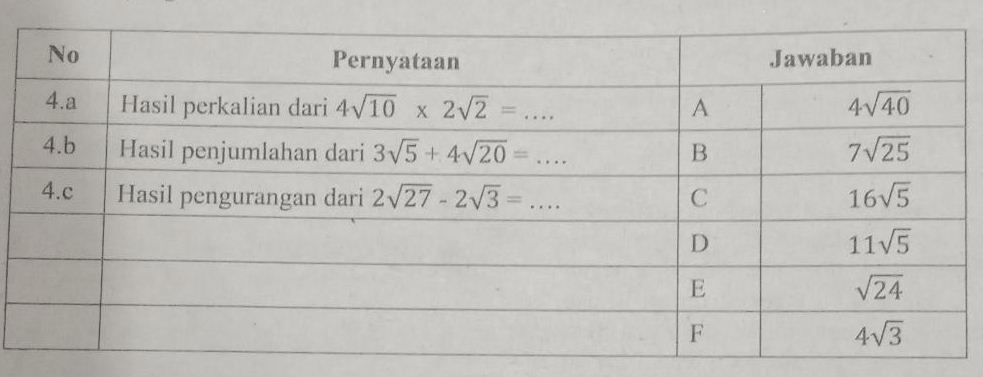 No Pernyataan Jawaban
4.a Hasil perkalian dari 4√10 x 2√2 = .... A 4√40
4.b Hasil penjumlahan dari 3√5 + 4√20 = .... B 7√25
4.c Hasil pengurangan dari 2√27 - 2√3 = .... C 16√5
D 11√5
E √24
F 4√3